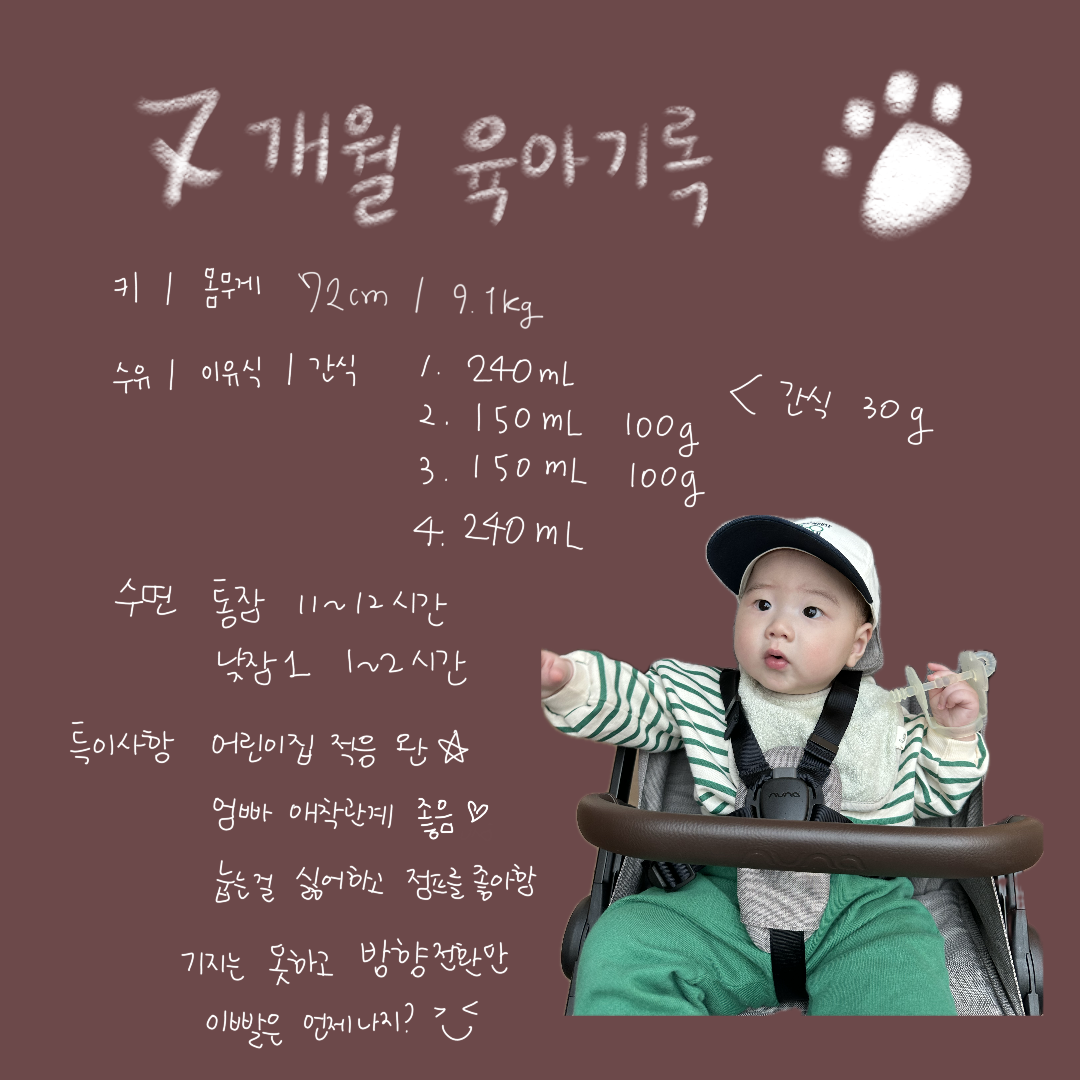 7개월 육아기록
키 | 몸무게 72cm / 9.1kg
수유 | 이유식 | 간식 1. 240mL
2. 150mL 100g < 간식 30g
3. 150mL 100g
4. 240mL
수면 통잠 11~12시간
낮잠 1 1~2시간
특이사항 어린이집 적응 완☆
엄빠 애착관계 좋음♡
눕는걸 싫어하고 점프를 좋아함
기지는 못하고 방향전환만
이빨은 언제나지?
nuna